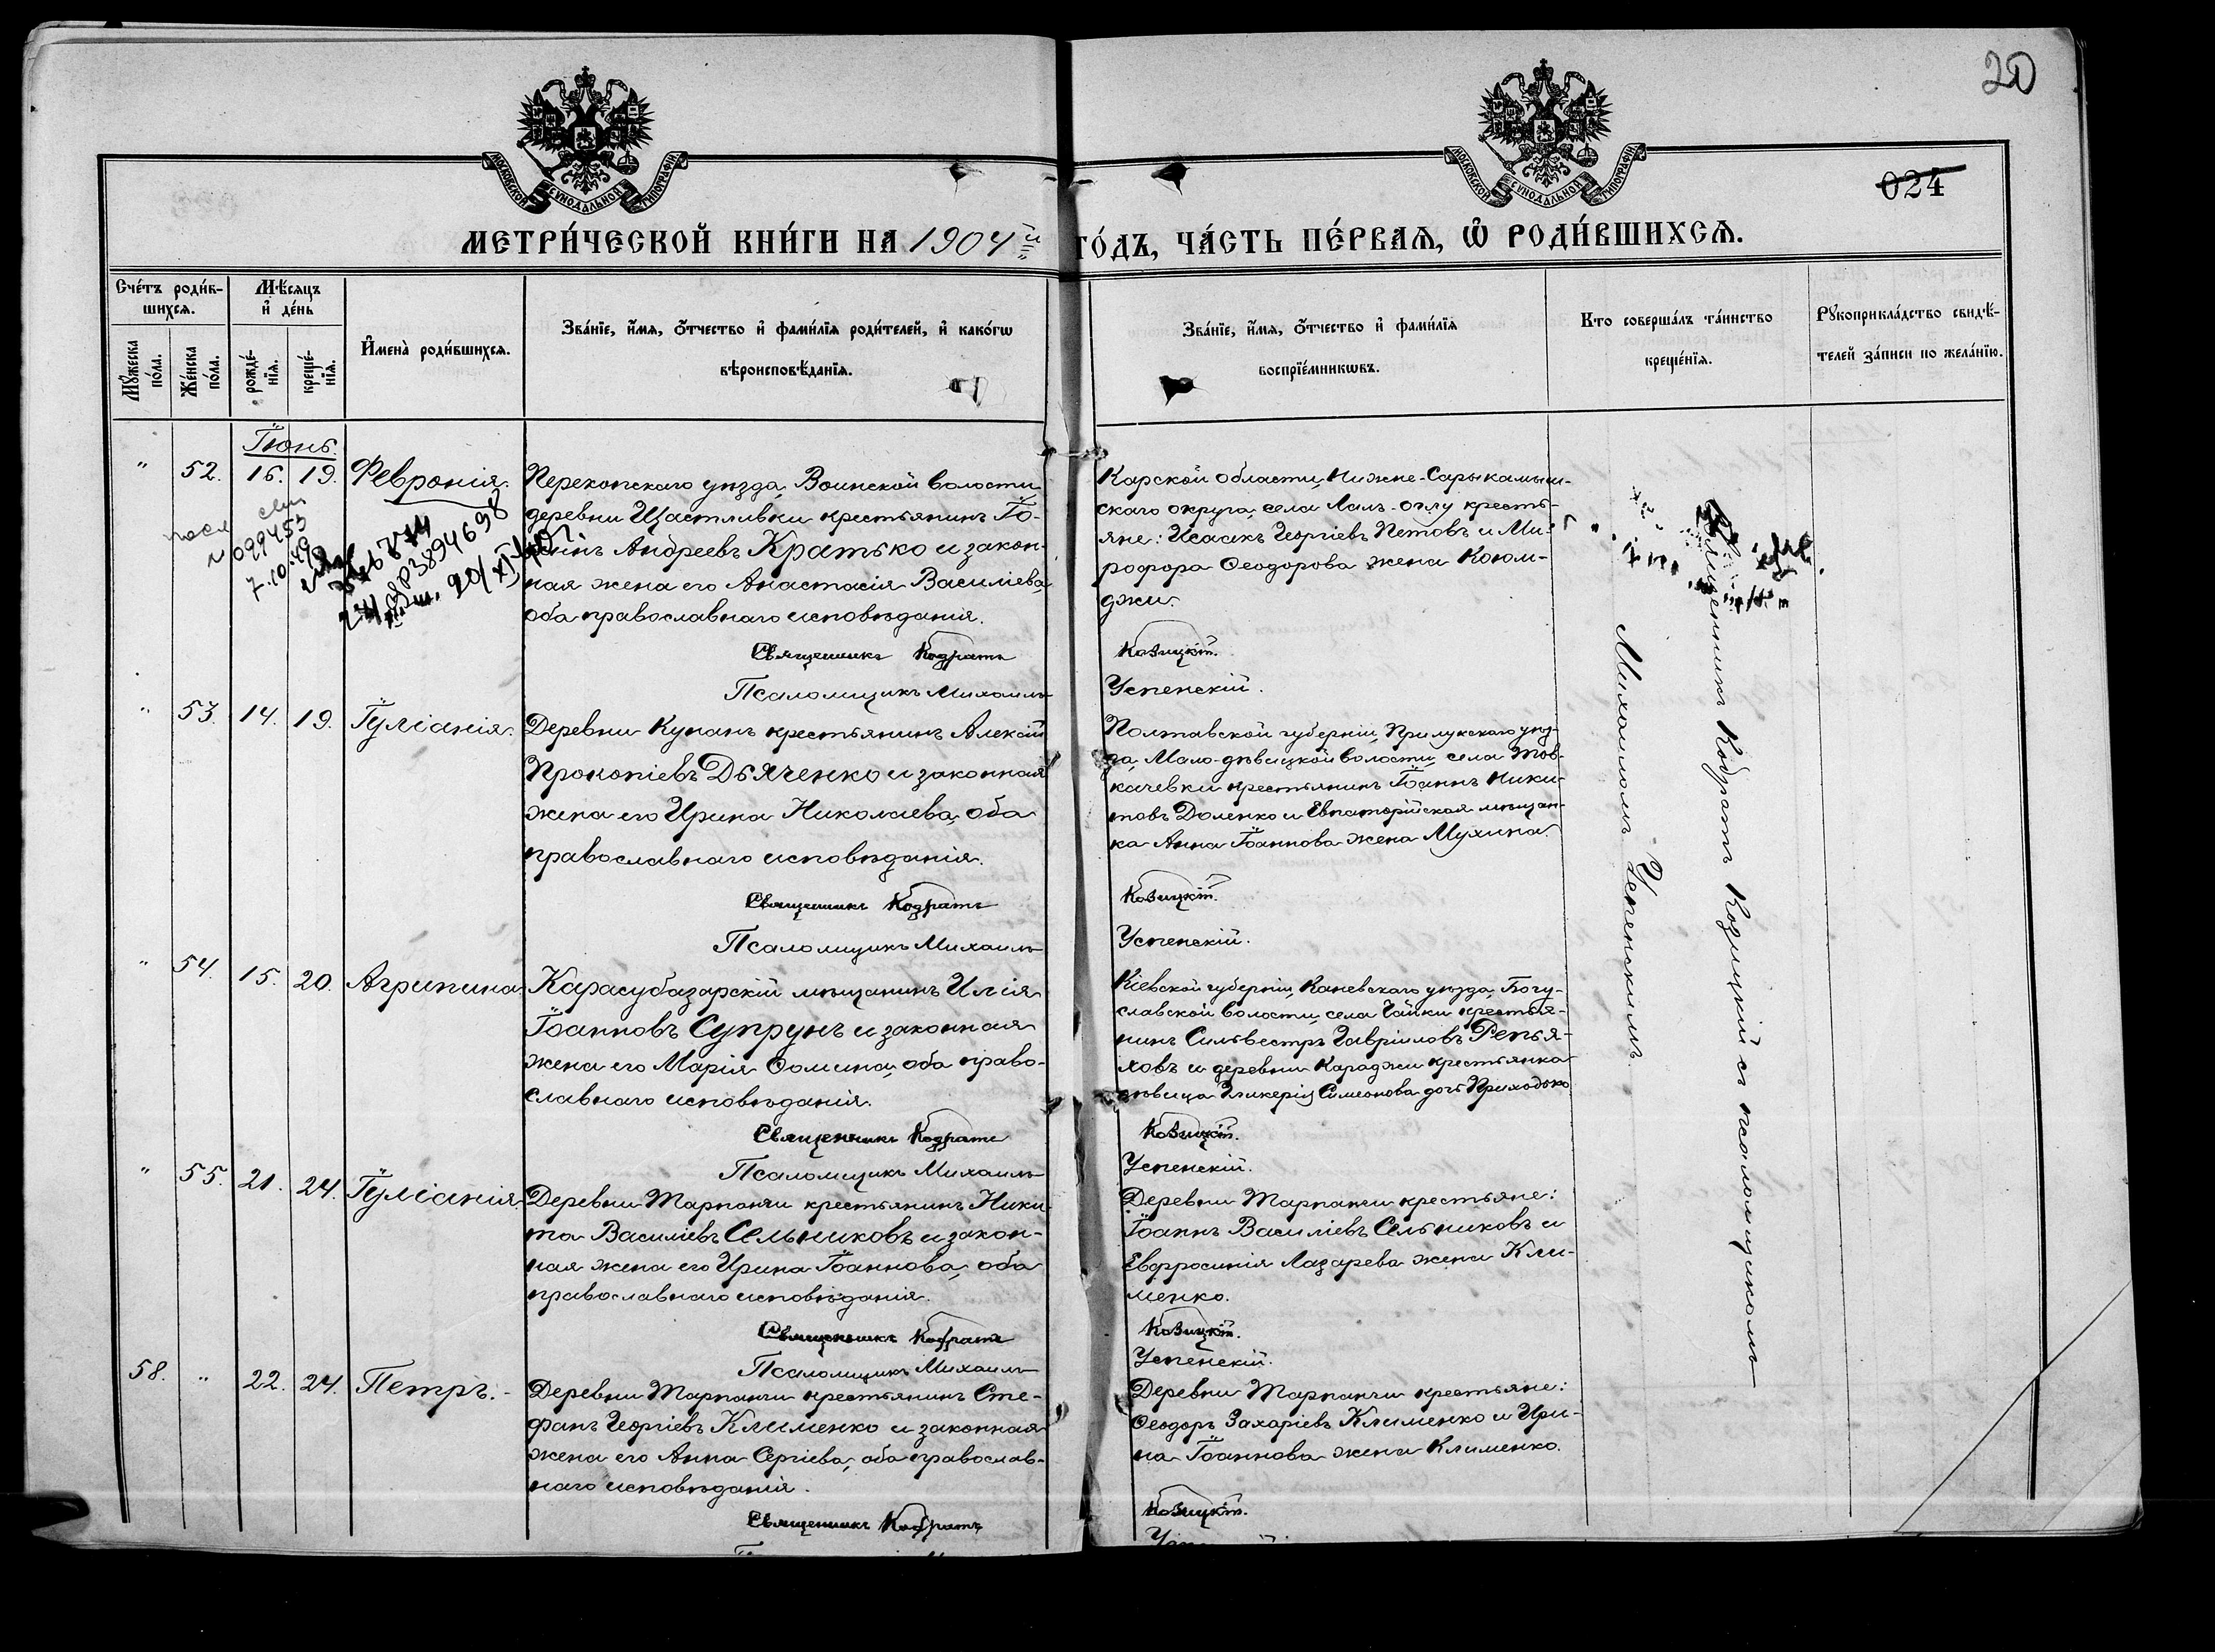 20
024
МОСКОВСКОЙ СУНОДАЛЬНОЙ ТИПОГРАФІИ.
МОСКОВСКОЙ СУНОДАЛЬНОЙ ТИПОГРАФІИ.
МЕТРИ́ЧЕСКОЙ КНИ́ГИ НА 1904й ГО́ДЪ, ЧА́СТЬ ПЕ́РВАѦ, Ѡ҆ РОДИ́ВШИХСѦ.
Сче́тъ роди́в-
шихсѧ.
Мꙋжеска по́ла.
Же́нска по́ла.
Мѣ́сѧцъ и҆ де́нь
рожде́-
нїѧ.
креще́-
нїѧ.
И҆мена̀ роди́вшихсѧ.
Зва́нїе, и҆́мѧ, ѻ҆́тчество и҆ фами́лїѧ роди́телей, и҆ како́гѡ
вѣроисповѣ́данїѧ.
Зва́нїе, и҆́мѧ, ѻ҆́тчество и҆ фами́лїѧ
воспрїе́мникѡвъ.
Кто соверша́лъ та́инство
креще́нїѧ.
Рꙋкоприкла́дство свидѣ́-
телей за́писи по жела́нїю.
Іюнь.
" 52. 16. 19. Февронія.
099453
7.10.49
Перекопскаго уѣзда, Воинской волости
деревни Щастливки крестьянинъ Іо-
аннъ Андреевъ Кратько и закон-
ная жена его Анастасія Василіева,
оба православнаго исповѣданія.
Священникъ Кодратъ
Псаломщикъ Михаилъ
Карской области, Нижне-Сарыкамыш-
скаго округа, села Лалъ-оглу кресть-
яне: Исаакъ Георгіевъ Петовъ и Ми-
рофора Ѳеодорова жена Коюм-
джи.
Козицкій.
Успенскій.
" 53. 14. 19. Іуліанія.
Деревни Кунанъ крестьянинъ Алексій
Прокопіевъ Дьяченко и законная
жена его Ирина Николаева, оба
православнаго исповѣданія.
Священникъ Кодратъ
Псаломщикъ Михаилъ
Полтавской губерніи, Прилукскаго уѣз-
да, Мало-дѣвицкой волости, села Тов-
качевки крестьянинъ Іоаннъ Ники-
товъ Доленко и Евпаторійская мѣщан-
ка Анна Іоаннова жена Мухина.
Козицкій.
Успенскій.
" 54. 15. 20. Агрипина.
Карасубазарскій мѣщанинъ Илія
Іоанновъ Супрунъ и законная
жена его Марія Ѳомина, оба право-
славнаго исповѣданія.
Священникъ Кодратъ
Псаломщикъ Михаилъ
Кіевской губерніи, Каневскаго уѣзда, Богу-
славской волости, села Чайки крестья-
нинъ Сильвестръ Гавріиловъ Репья-
ховъ и деревни Караджи крестьянка
дѣвица Гликерія Симеонова дочь Приходько
Козицкій.
Успенскій.
" 55. 21. 24. Іуліанія
Деревни Тарпанчи крестьянинъ Ники-
та Василіевъ Сельниковъ и закон-
ная жена его Ирина Іоаннова, оба
православнаго исповѣданія.
Священникъ Кодратъ
Псаломщикъ Михаилъ
Деревни Тарпанчи крестьяне:
Іоаннъ Василіевъ Сельниковъ и
Евфросинія Лазарева жена Кли-
менко.
Козицкій.
Успенскій.
58. " 22. 24. Петръ.
Деревни Тарпанчи крестьянинъ Сте-
фанъ Георгіевъ Клименко и законная
жена его Анна Сергіева, оба православ-
наго исповѣданія.
Священникъ Кодратъ
Деревни Тарпанчи крестьяне:
Ѳеодоръ Захаріевъ Клименко и Ири-
на Іоаннова жена Клименко.
Козицкій.
Священникъ Кодратъ Козицкій съ псаломщикомъ
Михаиломъ Успенскимъ